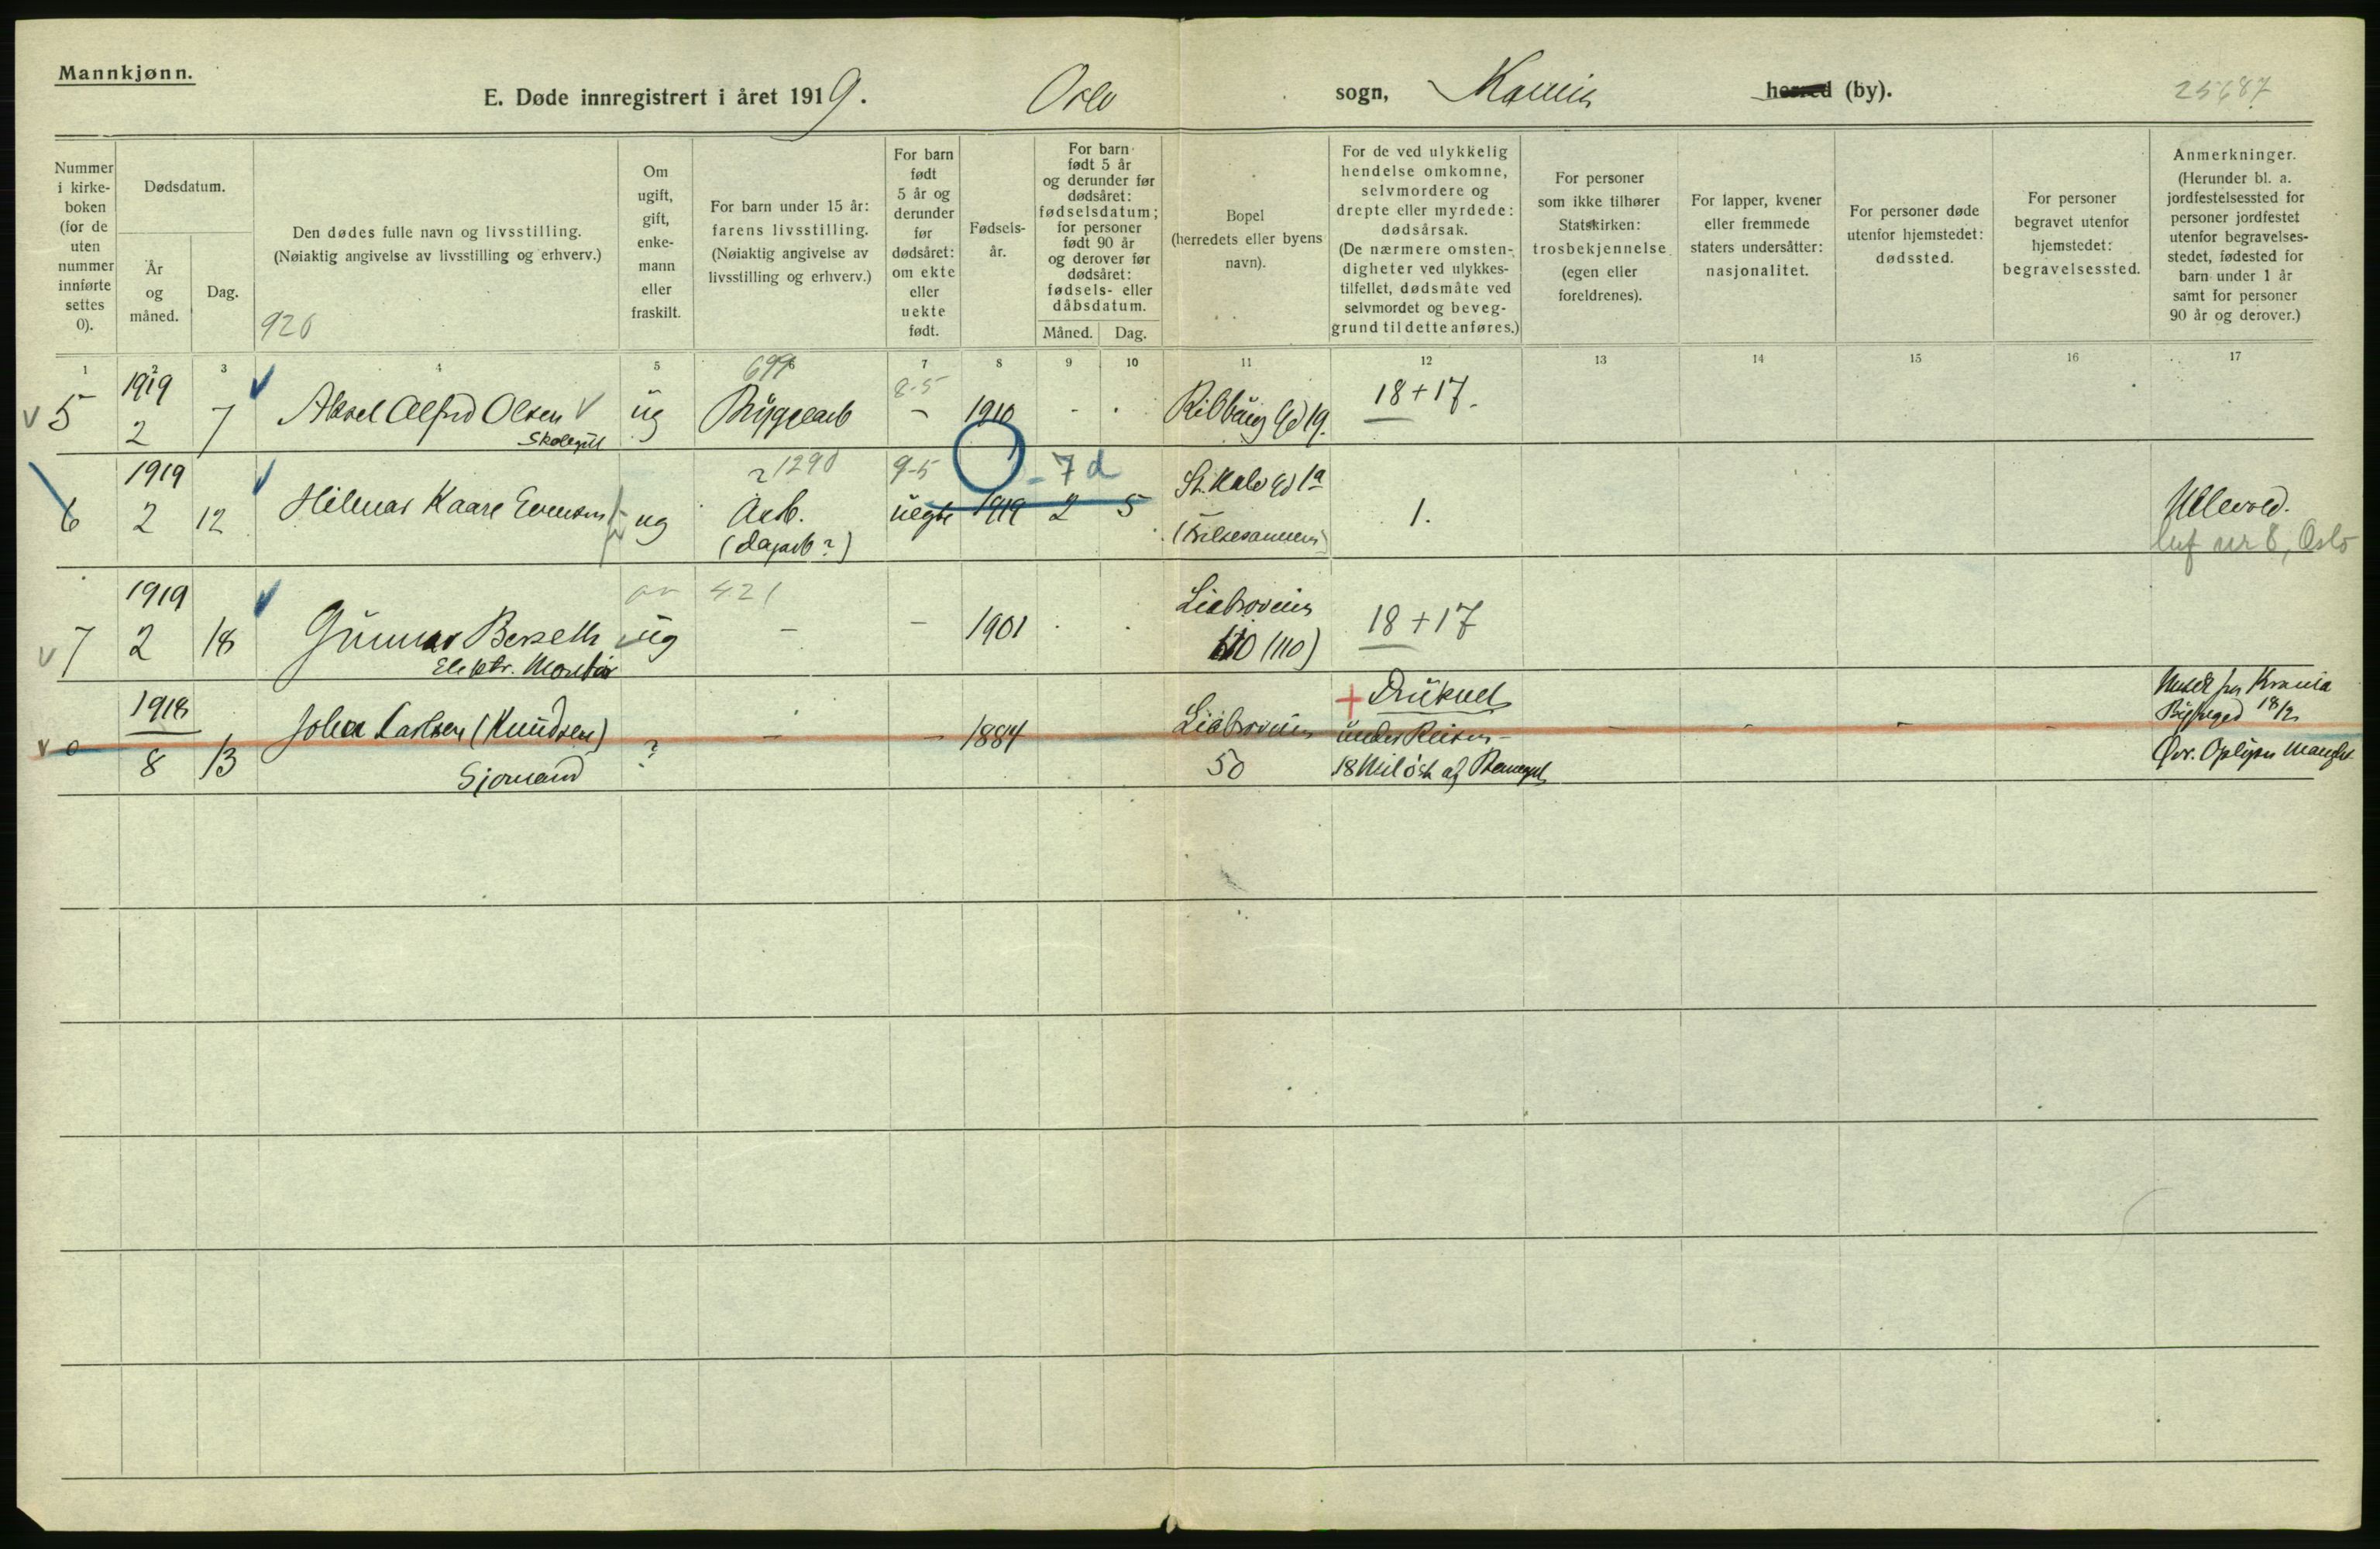 Mannkjønn.
E. Døde innregistrert i året 1919. Oslo sogn, herred (by). 25687
Nummer i kirke-boken (for de uten nummer innførte settes 0).
Dødsdatum.
År og måned.
Dag.
Den dødes fulle navn og livsstilling.
(Nøiaktig angivelse av livsstilling og erhverv.)
920
Om ugift, gift, enke-mann eller fraskilt.
For barn under 15 år: farens livsstilling.
(Nøiaktig angivelse av livsstilling og erhverv.)
For barn født 5 år og derunder før dødsåret: om ekte eller uekte født.
Fødsels-år.
For barn født 5 år og derunder før dødsåret: fødselsdatum; for personer født 90 år og derover før dødsåret: fødsels- eller dåbsdatum.
Måned. Dag.
Bopel (herredets eller byens navn).
For de ved ulykkelig hendelse omkomne, selvmordere og drepte eller myrdede: dødsårsak.
(De nærmere omsten-digheter ved ulykkes-tilfellet, dødsmåte ved selvmordet og beveg-grund til dette anføres.)
For personer som ikke tilhører Statskirken: trosbekjennelse (egen eller foreldrenes).
For lapper, kvener eller fremmede staters undersåtter: nasjonalitet.
For personer døde utenfor hjemstedet: dødssted.
For personer begravet utenfor hjemstedet: begravelsessted.
Anmerkninger.
(Herunder bl. a. jordfestelsessted for personer jordfestet utenfor begravelses-stedet, fødested for barn under 1 år samt for personer 90 år og derover.)
1 2 3 4 5 6 7 8 9 10 11 12 13 14 15 16 17
V 5 1919 2 7 Aksel Alfred Olsen V ug Byggearb 8-5 - 1910 - . Gd 19. 18+17.
Skolegut
6 1919 2 12 Hilmar Kaare Evensen ug ? 1290 Arb. (dagarb?) 9-5 uegte 1919 2 5 - 7 d St. Halv Gd 1a 1. Ullevold.
nr 8, Oslo
V 7 1919 2 18 Gunnar Berseth ug 421 - - 1901 . . Liabroveien 110 (110) 18+17
Elektr. Montør
V 0 1918 8 13 Johan Karlsen (Knudsen) ? - - 1884 Liabroveien 50 + Druknet under Reisen - - - - -
Sjømand
18 Mil øst af
Krania
18/2
Øvr. Oplysn mangler